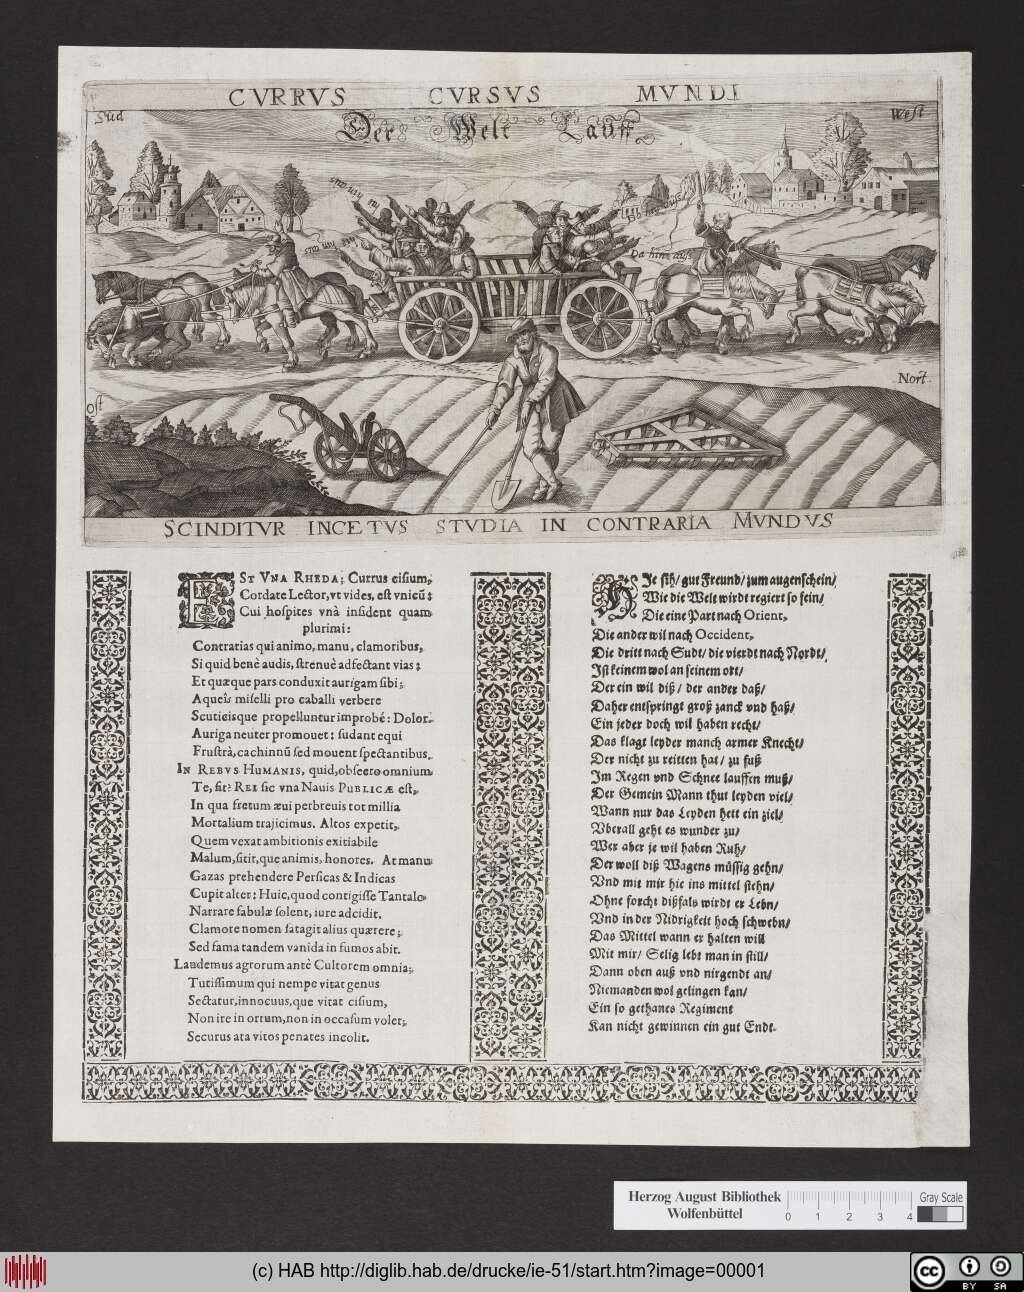 CVRRVS CVRSVS MVNDI
Sud
West
Der Welt Lauff
Da hin auß
Nort.
Ost
SCINDITVR INCETUS STVDIA IN CONTRARIA MVNDVS
EST VNA RHEDA; Currus eisium,
Cordate Lector, vt vides, est vnicū:
Cui hospites vnà insident quam
plurimi:
Contrarias qui animo, manu, clamoribus,
Si quid benè audis, strenuè adfectant vias:
Et quæque pars conduxit aurigam sibi;
A queis miselli pro caballi verbere
Scuticisque propelluntur improbè: Dolor.
Auriga neuter promouet: sudant equi
Frustrà, cachinnū sed mouent spectantibus.
IN REBVS HUMANIS, quid, obsecro omnium
Te, sit? REI sic vna Navis PUBLICÆ est,
In qua fretum æui perbreuis tot millia
Mortalium trajicimus. Altos expetit,
Quem vexat ambitionis exitiabile
Malum, sitit, que animis, honores. At manu
Gazas prehendere Persicas & Indicas
Cupit alter: Huic, quod contigisse Tantalo
Narrare fabulæ solent, iure adcidit.
Clamore nomen satagit alius quærere;
Sed fama tandem vanida in fumos abit.
Laudemus agrorum antè Cultorem omnia;
Tutissimum qui nempe vitæ genus
Sectatur, innocuus, que vitat cisium,
Non ire in ortum, non in occasum volet;
Securus at a vitos penates incolit.
HJe sih/ gut Freund/ zum augenschein/
Wie die Welt wirdt regiert so fein/
Die eine Part nach Orient,
Die ander wil nach Occident,
Die dritt nach Sudt/ die vierdt nach Nordt/
Jst keinem wol an seinem ort/
Der ein wil diß/ der ander daß/
Daher entspringt groß zanck vnd haß/
Ein jeder doch wil haben recht/
Das klagt leyder manch armer Knecht/
Der nicht zu reitten hat/ zu fuß
Jm Regen vnd Schnee lauffen muß/
Der Gemein Mann thut leyden viel/
Wann nur das Leyden hett ein ziel/
Vberall geht es wunder zu/
Wer aber je wil haben Ruh/
Der woll diß Wagens müssig gehn/
Vnd mit mir hie ins mittel stehn/
Ohne forcht dißfals wirdt er Lebn/
Vnd in der Nidrigkeit hoch schwebn/
Das Mittel wann er halten will
Mit mir/ Selig lebt man in still/
Dann oben auß vnd nirgendt an/
Niemanden wol gelingen kan/
Ein so gethanes Regiment
Kan nicht gewinnen ein gut Endt.
Herzog August Bibliothek
Wolfenbüttel
0 1 2 3 4
Gray Scale
(c) HAB http://diglib.hab.de/drucke/ie-51/start.htm?image=00001
cc BY SA